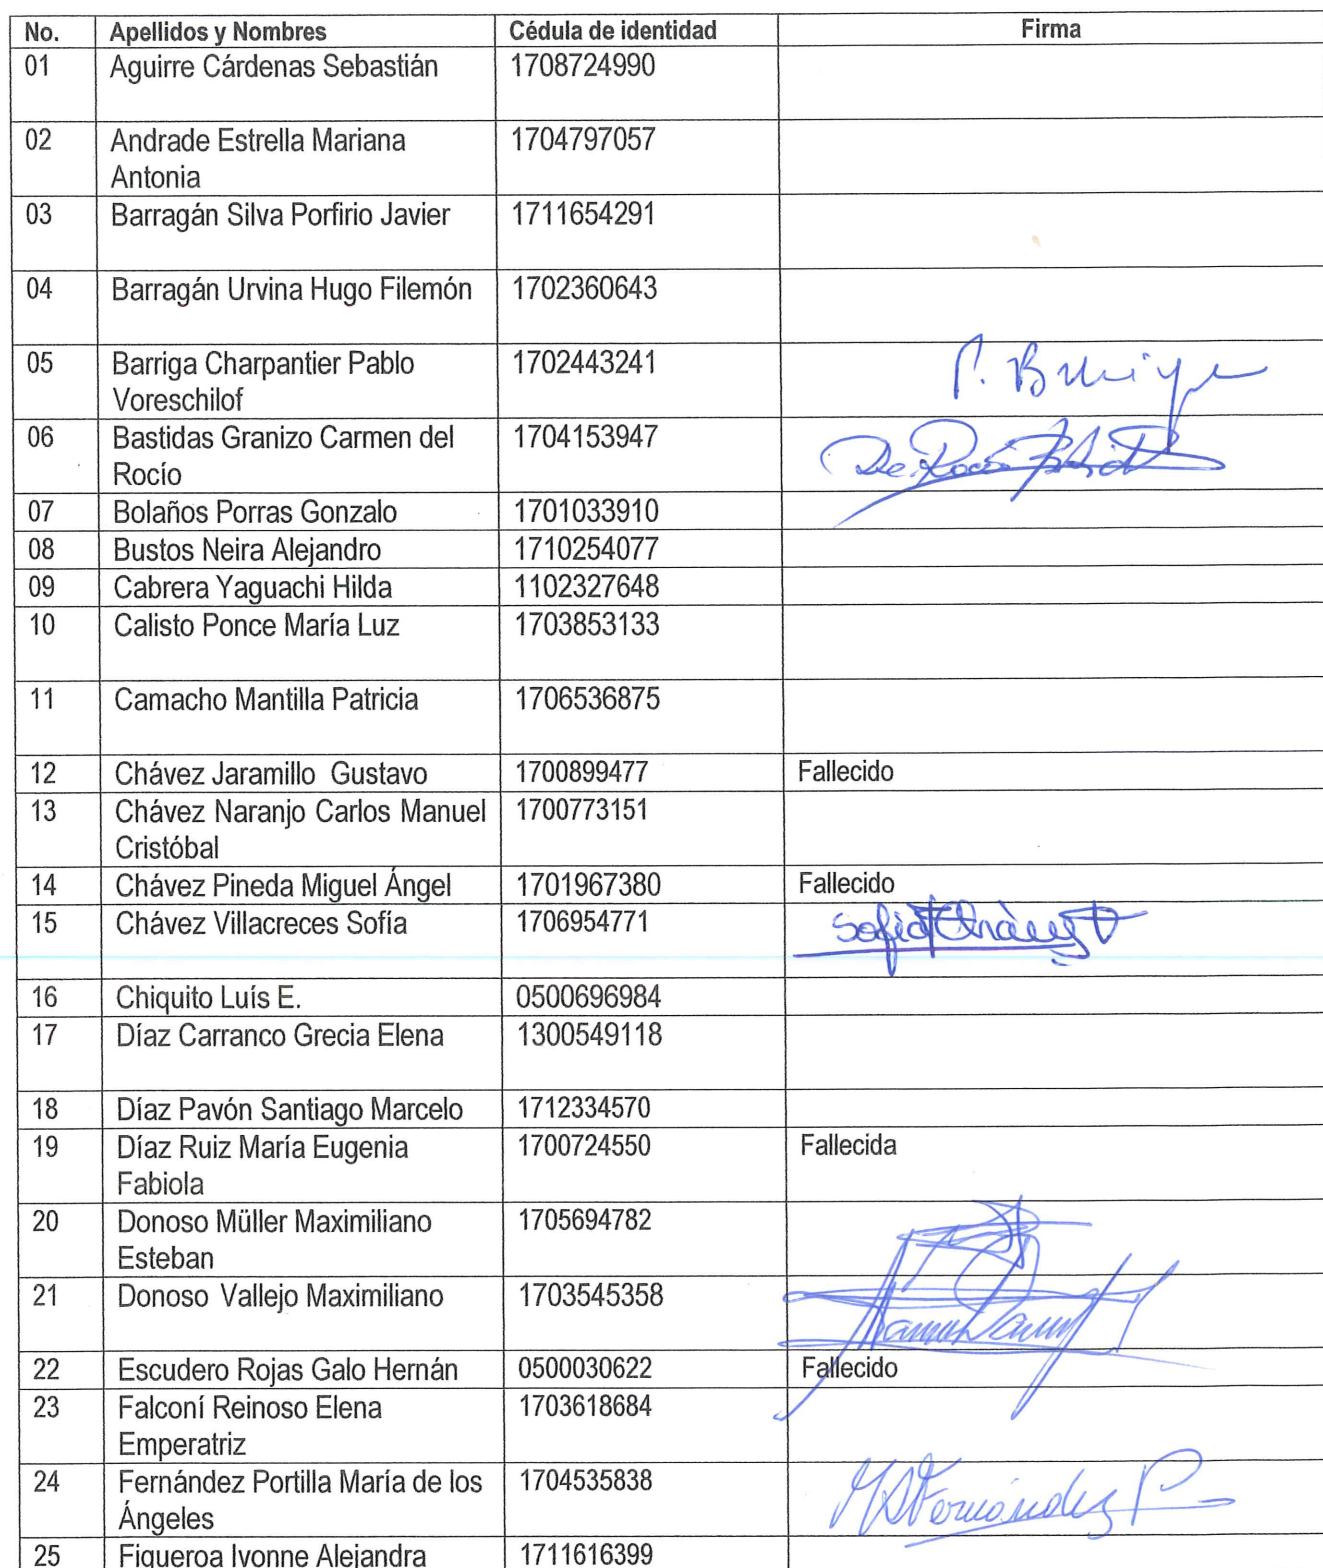 No. Apellidos y Nombres Cédula de identidad Firma
01 Aguirre Cárdenas Sebastián 1708724990
02 Andrade Estrella Mariana 1704797057
Antonia
03 Barragán Silva Porfirio Javier 1711654291
04 Barragán Urvina Hugo Filemón 1702360643
05 Barriga Charpantier Pablo 1702443241 P. Barriga
Voreschilof
06 Bastidas Granizo Carmen del 1704153947
Rocío
07 Bolaños Porras Gonzalo 1701033910
08 Bustos Neira Alejandro 1710254077
09 Cabrera Yaguachi Hilda 1102327648
10 Calisto Ponce María Luz 1703853133
11 Camacho Mantilla Patricia 1706536875
12 Chávez Jaramillo Gustavo 1700899477 Fallecido
13 Chávez Naranjo Carlos Manuel 1700773151
Cristóbal
14 Chávez Pineda Miguel Ángel 1701967380 Fallecido
15 Chávez Villacreces Sofía 1706954771 Sofia
16 Chiquito Luís E. 0500696984
17 Díaz Carranco Grecia Elena 1300549118
18 Díaz Pavón Santiago Marcelo 1712334570
19 Díaz Ruiz María Eugenia 1700724550 Fallecida
Fabiola
20 Donoso Müller Maximiliano 1705694782
Esteban
21 Donoso Vallejo Maximiliano 1703545358
22 Escudero Rojas Galo Hernán 0500030622 Fallecido
23 Falconí Reinoso Elena 1703618684
Emperatriz
24 Fernández Portilla María de los 1704535838 Fernández P
Ángeles
25 Figueroa Ivonne Alejandra 1711616399